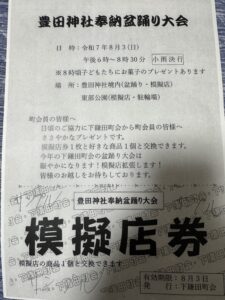 豊田神社奉納盆踊り大会
日 時：令和7年8月3(日)
午後6時～8時30分 小雨決行
※8時頃子どもたちにお菓子のプレゼントあります
場 所：豊田神社境内(盆踊り・模擬店)
東部公園(模擬店・駐輪場)
町会員の皆様へ
日頃のご協力に下鎌田町会から町会員の皆様へ
ささやかなプレゼントです。
模擬店券1枚と好きな商品1個と交換できます。
今年の下鎌田町会の盆踊り大会は
賑やかになります！模擬店拡張します！
皆様のお越しをお待ちしております。
豊田神社奉納盆踊り大会
模擬店券
模擬店の商品1個と交換できます
有効期限：8月3日
発行：下鎌田町会